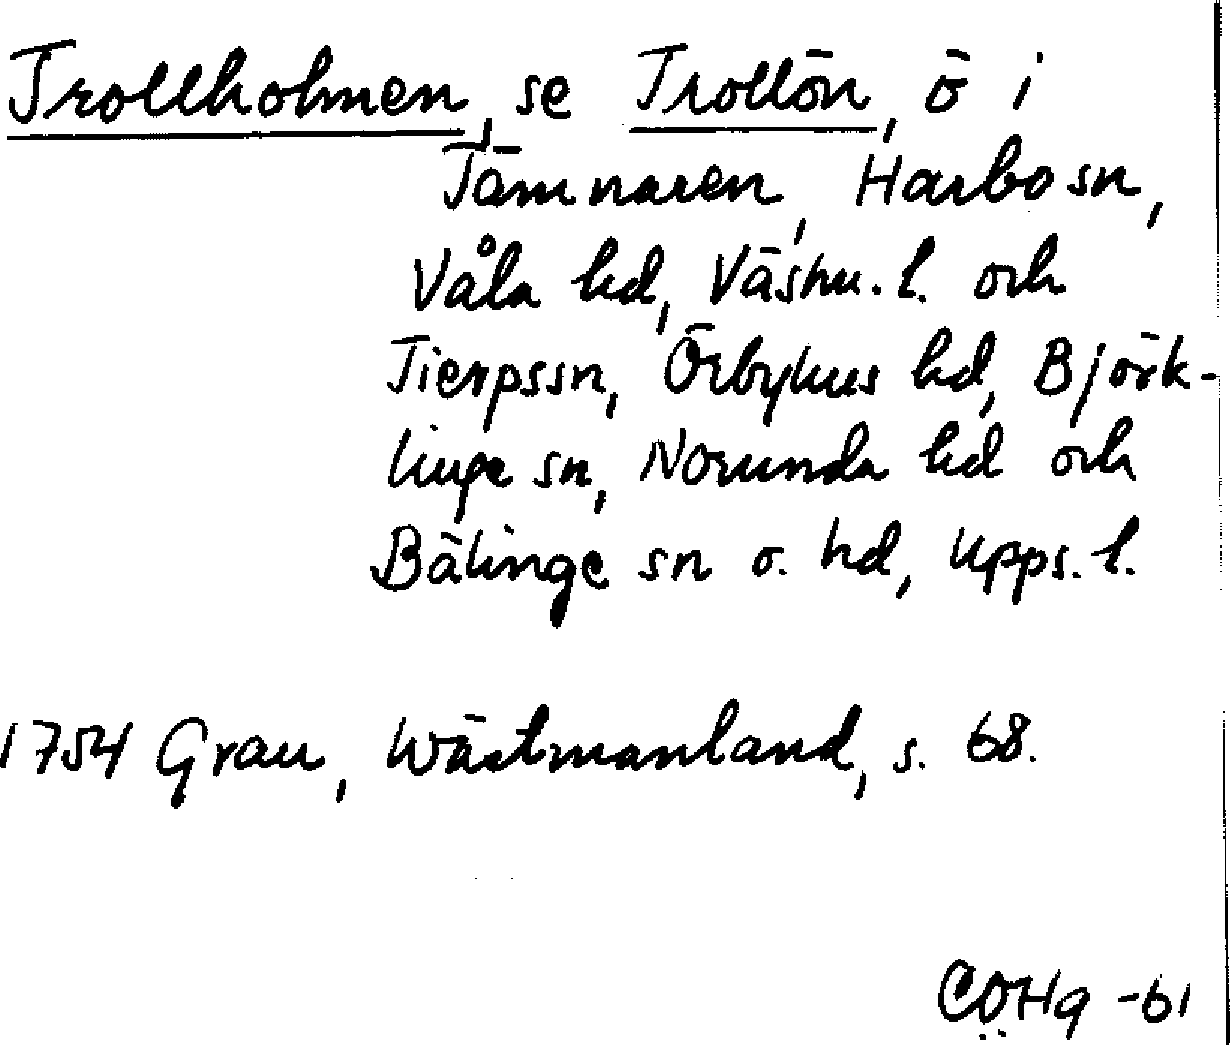 Trollholmen, se Trollön, ö i
Tämnaren, Harbo sn,
Våla hd, Västm. l. och
Tierps sn, Örbyhus hd, Björk-
linge sn, Norunda hd och
Bälinge sn o. hd, Upps. l.
1754 Grau, Wästmanland, s. 68.
CÖHg -61